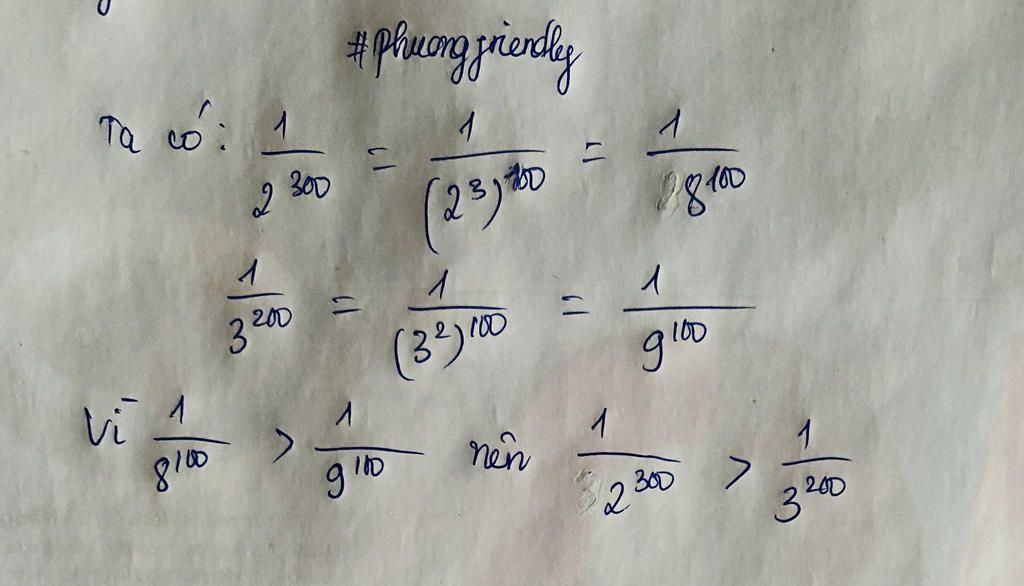 #phuongfriendly
Ta có: 1/2^300 = 1/(2^3)^100 = 1/8^100
1/3^200 = 1/(3^2)^100 = 1/9^100
Vì 1/8^100 > 1/9^100 nên 1/2^300 > 1/3^200